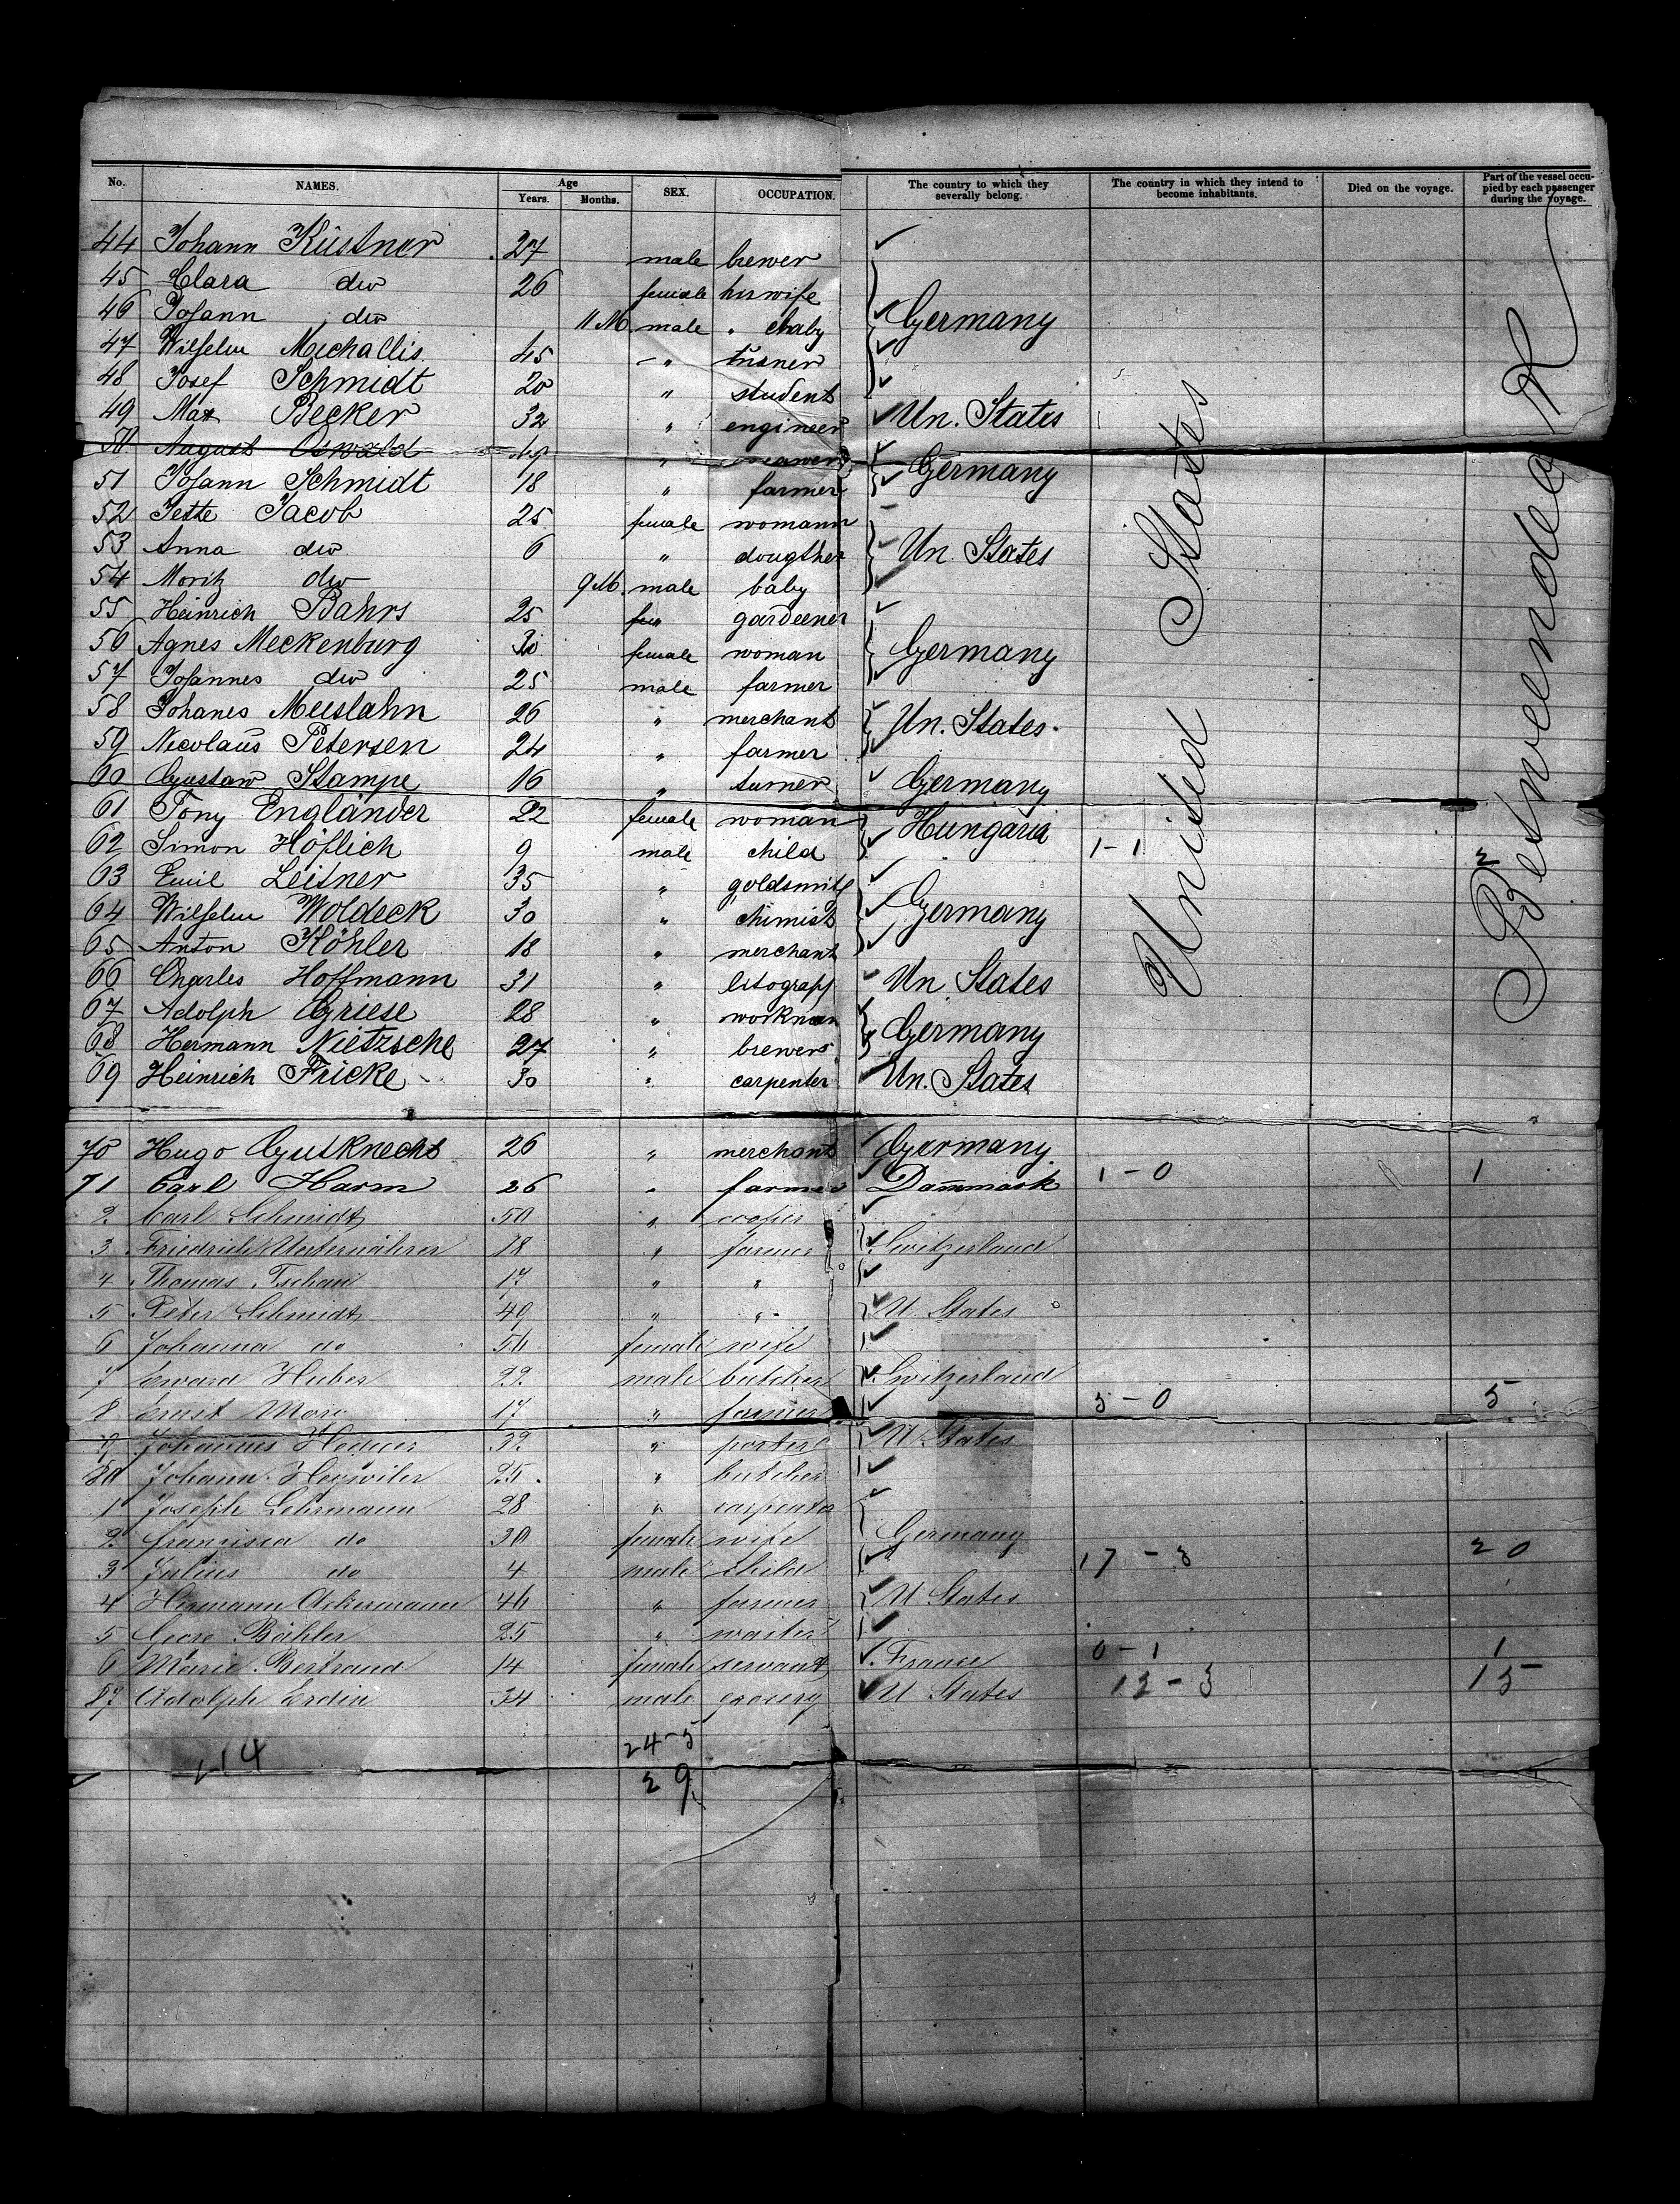 No. NAMES. Age Years. Months. SEX. OCCUPATION. The country to which they severally belong. The country in which they intend to become inhabitants. Died on the voyage. Part of the vessel occupied by each passenger during the voyage.
44 Johann Küstner 27 male brewer
45 Clara do 26 female his wife
46 Johann do 11 M. male " baby Germany
47 Wilhelm Michallis 45 " turner
48 Josef Schmidt 20 " student
49 Max Becker 32 " engineer Un. States
50 August Oswald " weawer
51 Johann Schmidt 18 " farmer Germany
52 Jette Jacob 25 female womann
53 Anna do 6 " dougther Un. States
54 Moritz do 9 M. male baby
55 Heinrich Bahrs 25 " gardeener
56 Agnes Meckenburg 30 female woman Germany
57 Johannes do 25 male farmer
58 Johanes Meislahn 26 " merchant Un. States.
59 Nicolaüs Petersen 24 " farmer
60 Gustaw Stampe 16 " turner Germany
61 Tony Engländer 22 female woman Hungaria
62 Simon Höflich 9 male child 1-1 2
63 Emil Leitner 35 " goldsmith
64 Wilhelm Woldeck 30 " chimist Germany
65 Anton Köhler 18 " merchant
66 Charles Hoffmann 31 " litograpf Un States
67 Adolph Griese 28 " workman
68 Hermann Nietzsche 27 " brewers Germany
69 Heinrich Fricke 30 " carpenter Un. States
United States
Betweendeck
70 Hugo Gutknecht 26 " merchant Germany
71 Carl Harm 26 " farmer Dammark 1-0 1
2 Carl Schmidt 50 " cooper
3 Friedrich Unternährer 18 " farmer Switzerland
4 Thomas Tschan 17 " "
5 Peter Schmidt 49 " " U States
6 Johanna do 56 female wife
7 Eward Huber 22 male butcher Switzerland
8 Ernst 17 " farmer 5-0 5
9 Johannes 32 " porter U States
80 Johann Heywiler 25 " butcher
1 Joseph Lehrmann 28 " carpenter
2 Francisca do 30 female wife Germany
3 Julius do 4 male child 17-3 20
4 Hermann Ackermann 46 " farmer U States
5 Geore Bähler 25 " waiter
6 Marie Bertrand 14 female servant France 0-1 1
87 Adolph Erdin 34 male grocery U States 12-3 15
24-5
214
29